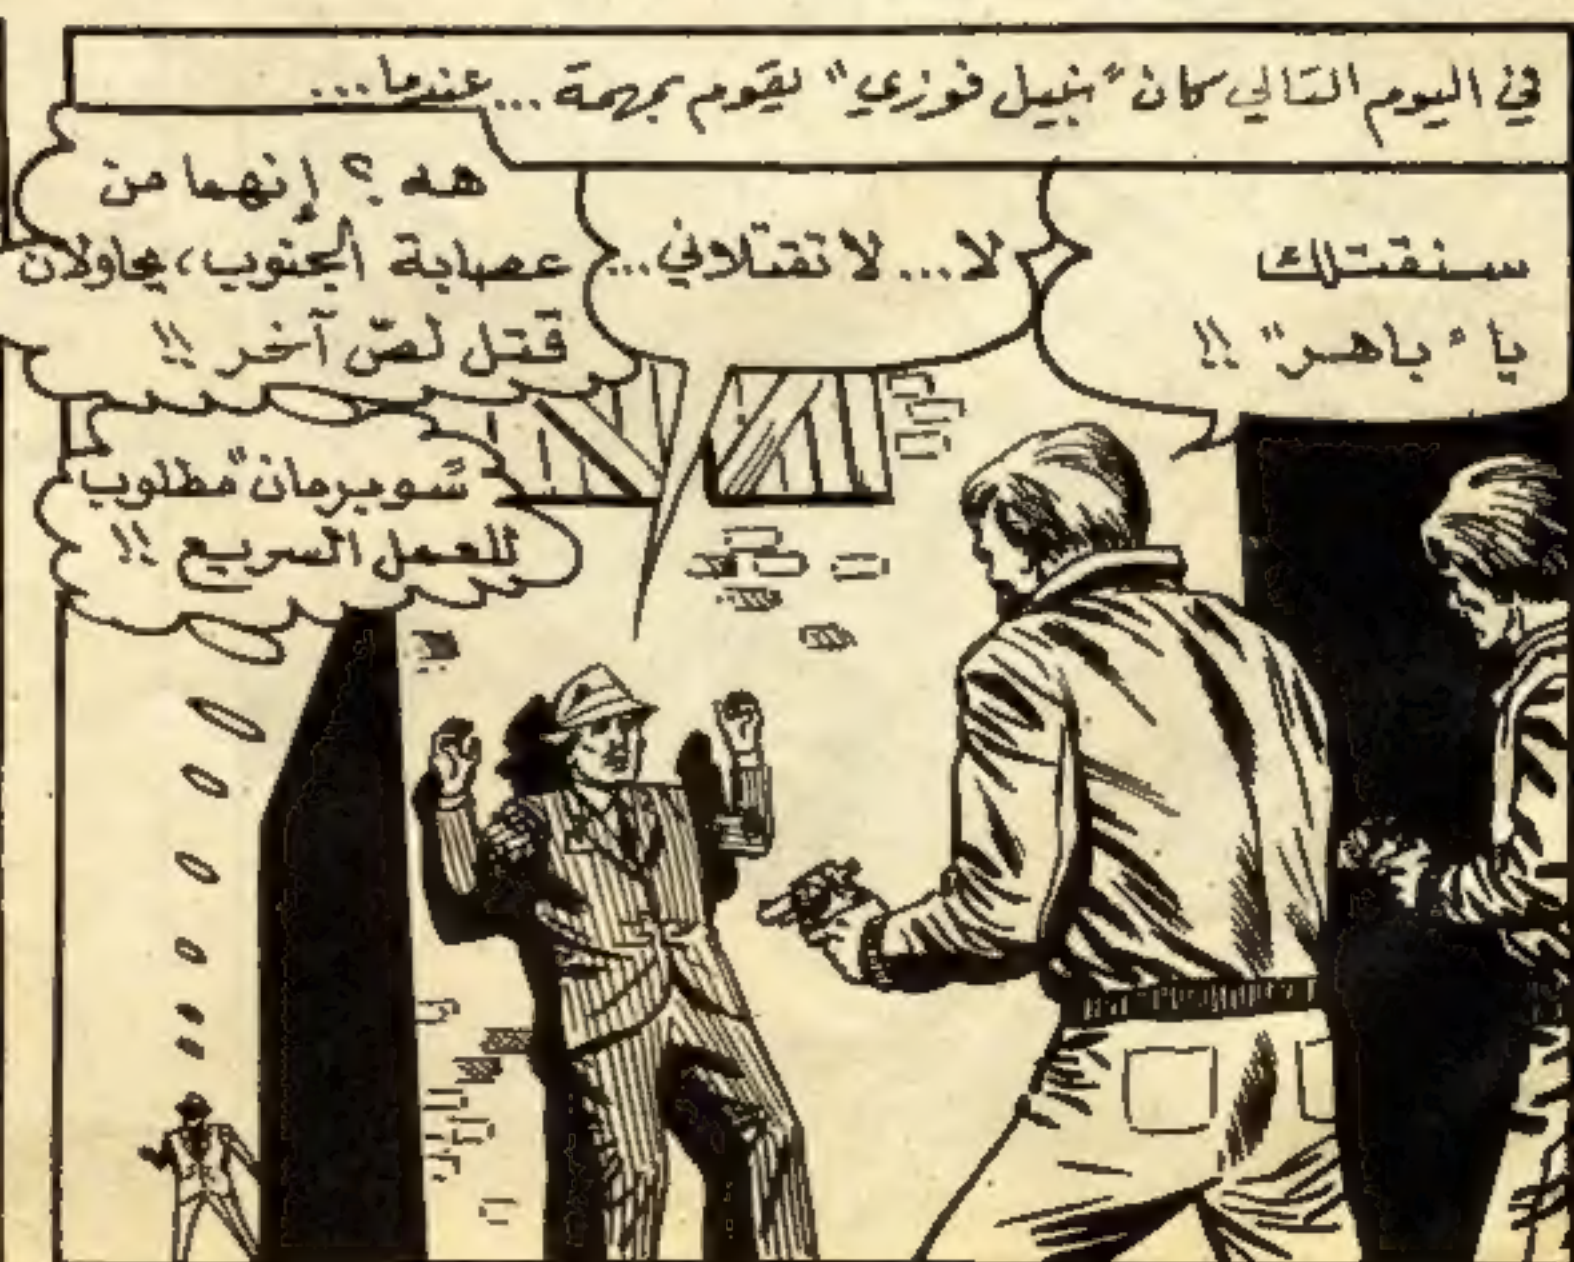 في اليوم التالي كان "نبيل فوزي" يقوم بمهمة... عندما...
سنقتلك
يا "باهر" !!
لا... لا تقتلاني...
هه ؟ إنهما من
عصابة الجنوب، يحاولان
قتل لصّ آخر !!
"سوبرمان" مطلوب
للعمل السريع !!